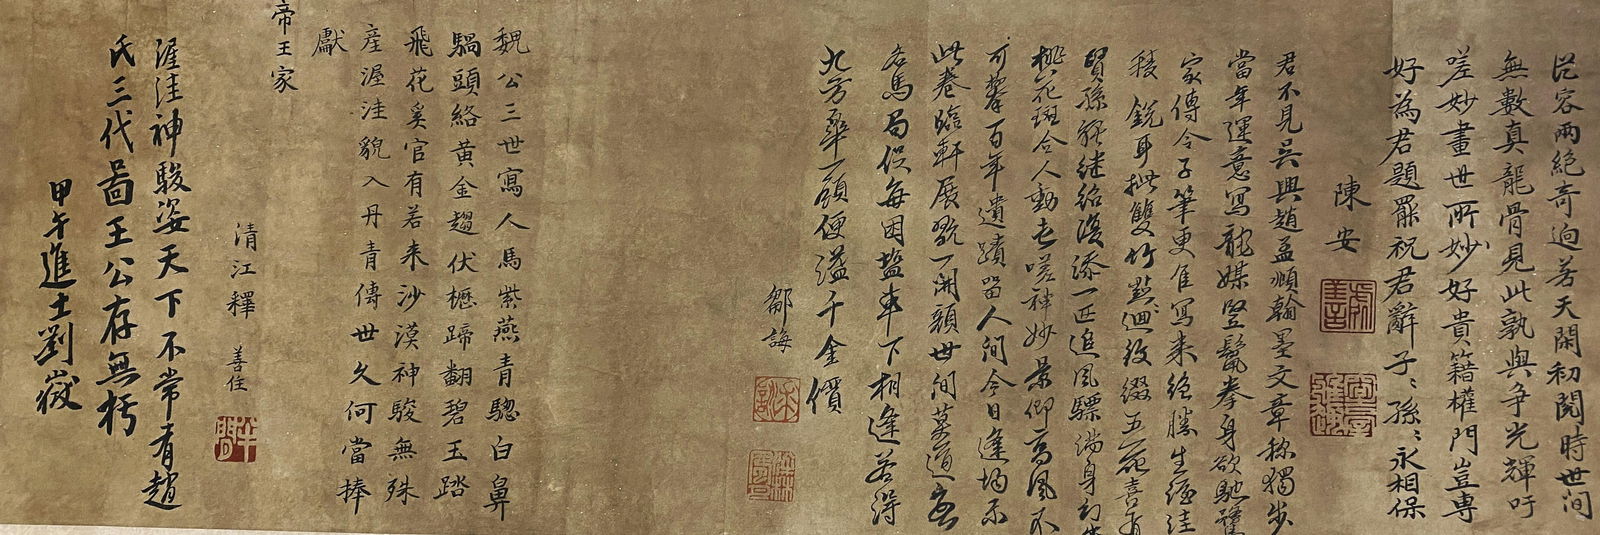 從容兩絕奇迥若天閑初閱時世間
無數真龍骨見此孰與爭光輝吁
嗟妙畫世所妙好貴籍權門豈專
好為君題罷祝君辭子〻孫〻永相保
陳安
君不見吳興趙孟頫翰墨文章稱獨步
當年運意寫龍媒豎鬣拳身欲馳騖
家傳令子筆更佳寫來絕勝生渥洼
稜銳耳批雙竹 五花喜有
賢孫能繼紹復添一匹追風驃滿身
桃花斑令人動色嗟神妙景仰高風不
可攀百年遺蹟留人間今日逢
此卷臨軒展翫一開顏世間莫道無
名馬局促每困鹽車下相逢若得
九方皋一顧便溢千金價
鄒誨
魏公三世寫人馬紫燕青驄白鼻
騧頭絡黃金趨伏櫪蹄翻碧玉踏
飛花奚官有若來沙漠神駿無殊
產渥洼貌入丹青傳世久何當捧
獻
帝王家
清江釋 善住
渥洼神駿姿天下不常有趙
氏三代啚王公存無朽
甲午進士劉